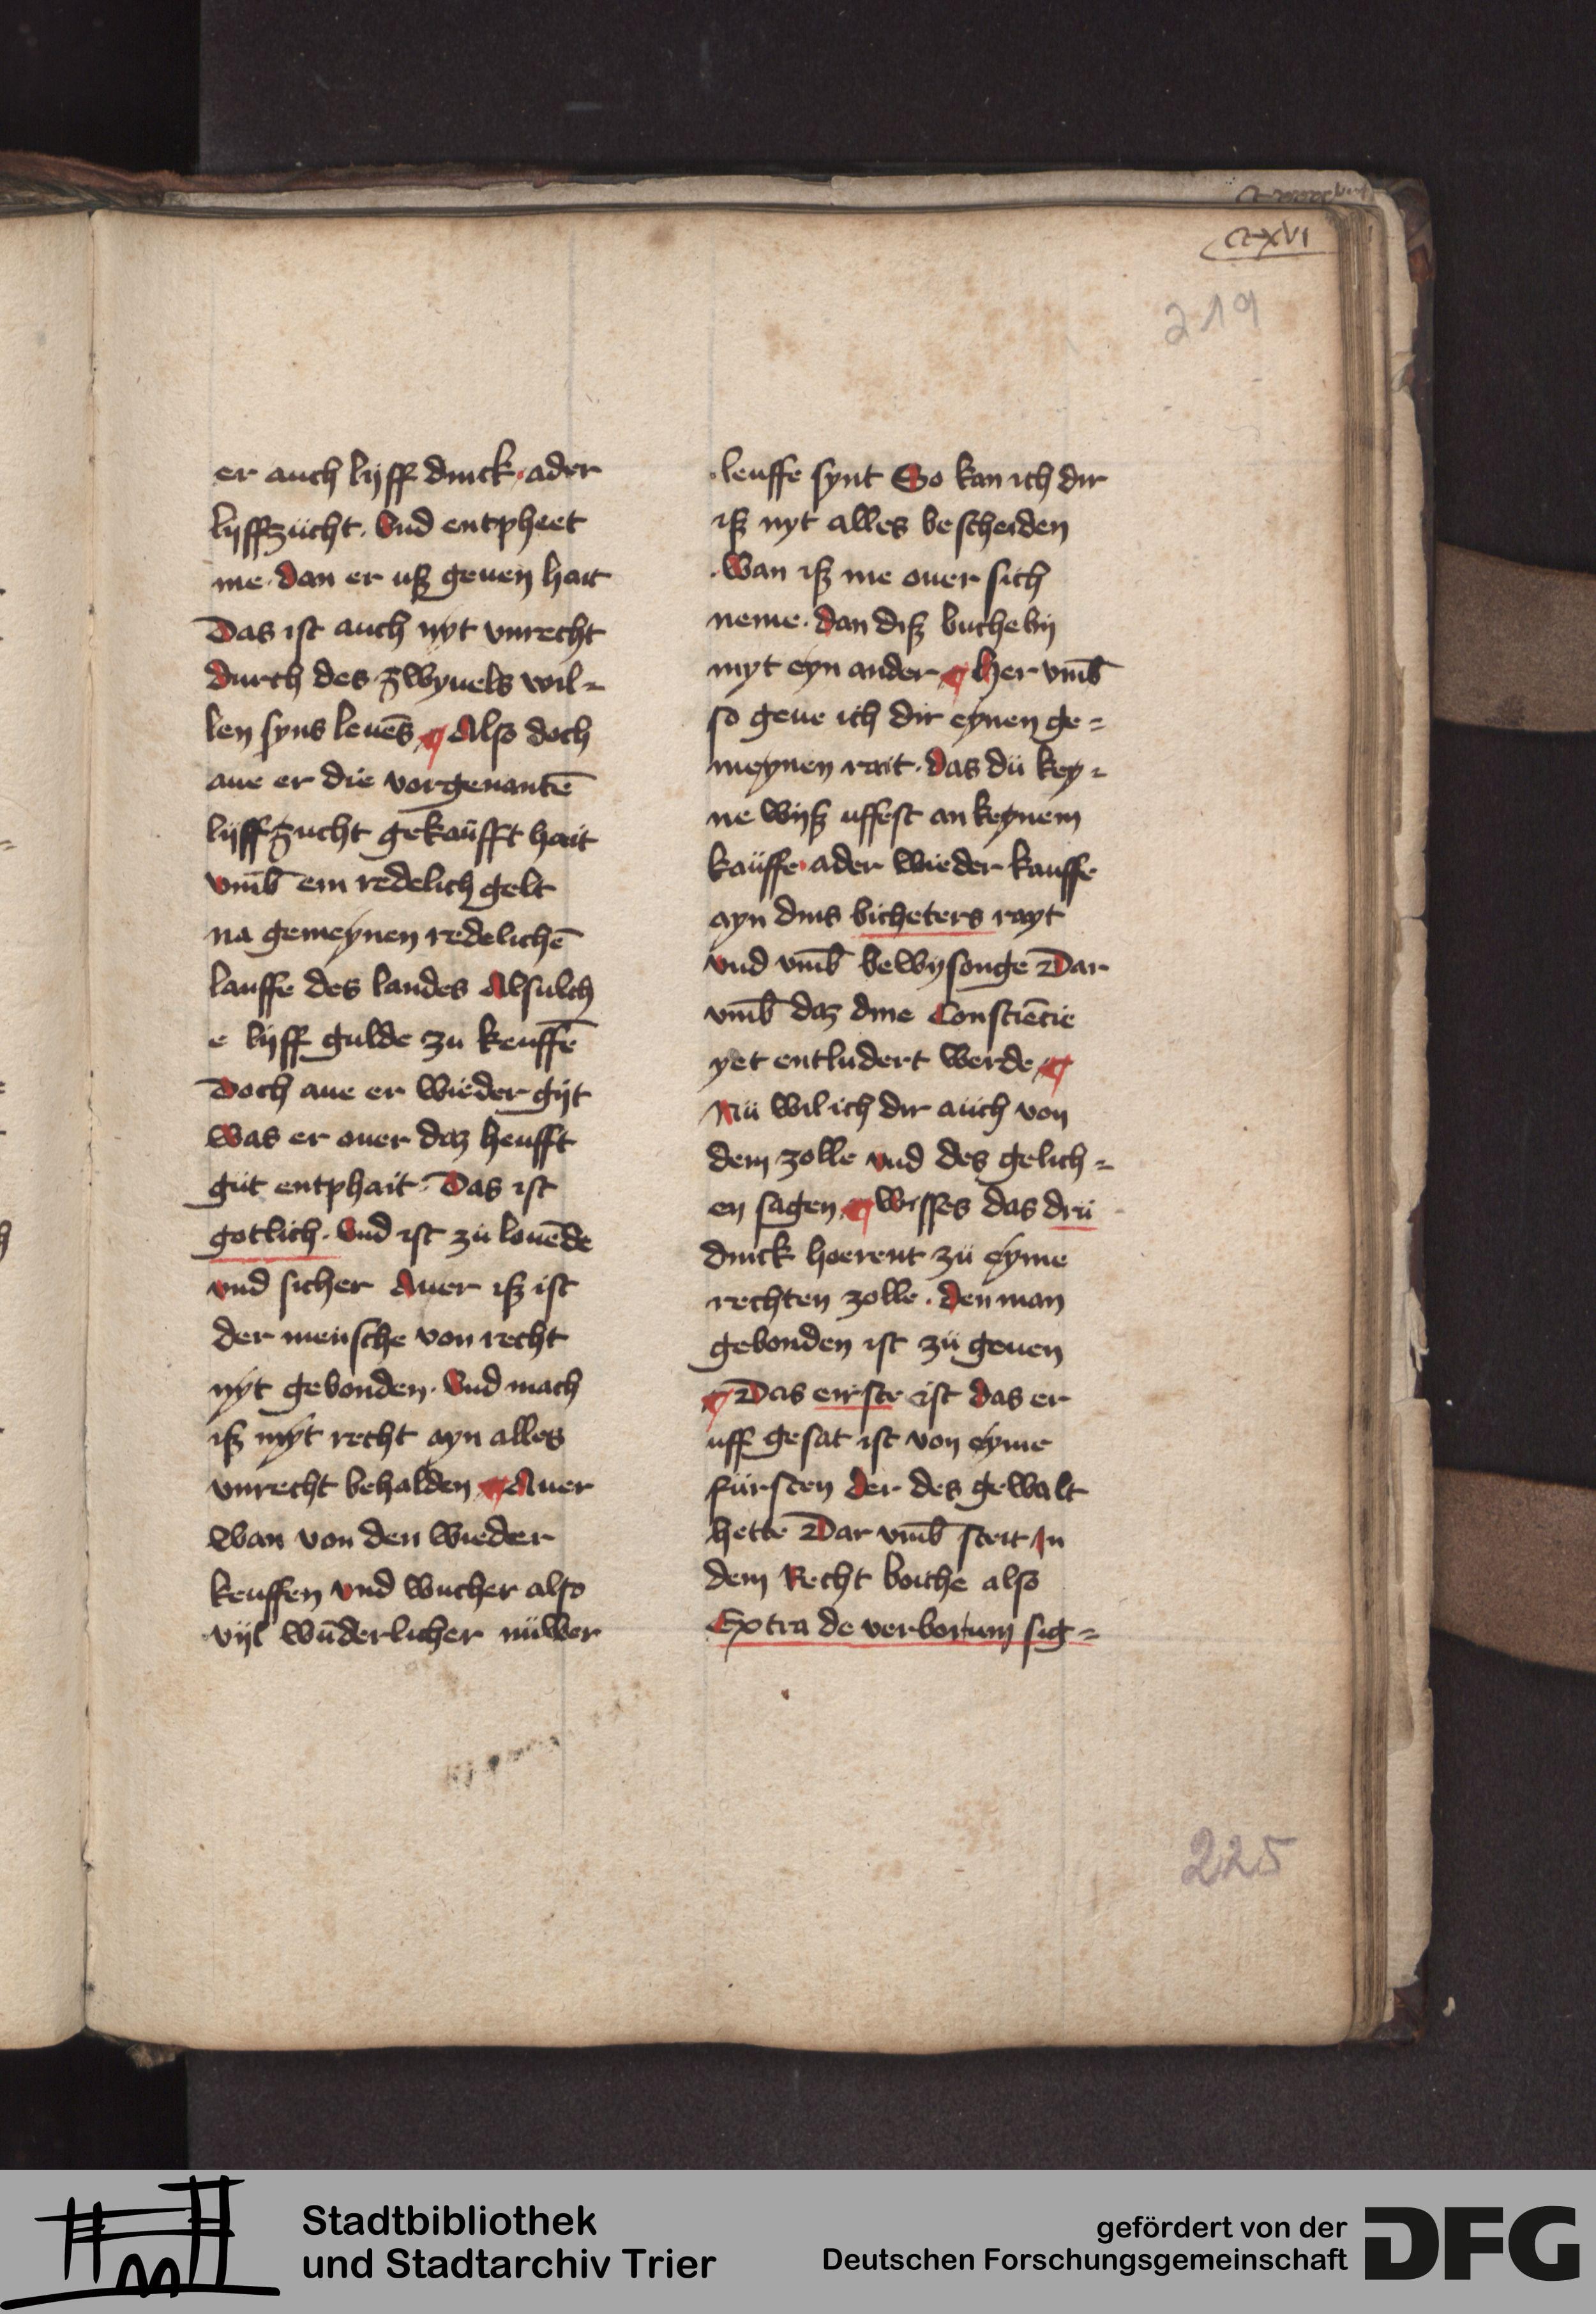 cxvi
219
er auch lijff dinck· ader
lijffzücht· Vnd entpheet
me· dan er uß geuen hait
Das ist auch nyt vnrecht
durch des zwyuels wil=
len syns leuēs ¶ Also doch
aue er die vorgenantē
lijffzucht gekaüfft hait
vmb̄ ein redelich gelt
na gemeynen redelichē
lauffe des landes Alsulch
e lijff gulde zu keuffē
Doch aue er wieder gijt
was er ouer daz heufft
güt entphait· Das ist
gotlich· Vnd ist zü louēde
vnd sicher Auer iß ist
der meńsche von recht
nyt gebonden· Vnd mach
iß myt recht ayn alles
vnrecht behalden ¶ Auer
wan von den wieder
keuffen vnd wucher also
vijl wūderlicher nüwer
leuffe synt So kan ich dir
iß nyt alles bescheiden
Wan iß me ouer sich
neme· dan diß bucheltij
myt eyn ander ¶ Her vmb̄
so geue ich dir eynen ge=
meynen rait· das dü key=
ne wijß uffest an keynem
kaüffe· ader wieder kauffe
ayn dins bicheters rayt
vnd vmb̄ bewysonge Dar
vmb̄ daz dine Consciēcie
yet entludert werde ¶
Nü wil ich dir aüch von
dem zolle vnd des gelich=
en sagen ¶ Wisses das drü
dinck hoerent zü eyme
rechten zolle· den man
gebonden ist zü geuen
¶ Das eirste ist das er
uff gesat ist von eyme
fürsten der des gewalt
hette Dar vmb̄ steit In
dem Recht boiche also
Extra de verborum sig=
225
Stadtbibliothek
und Stadtarchiv Trier
gefördert von der
Deutschen Forschungsgemeinschaft
DFG